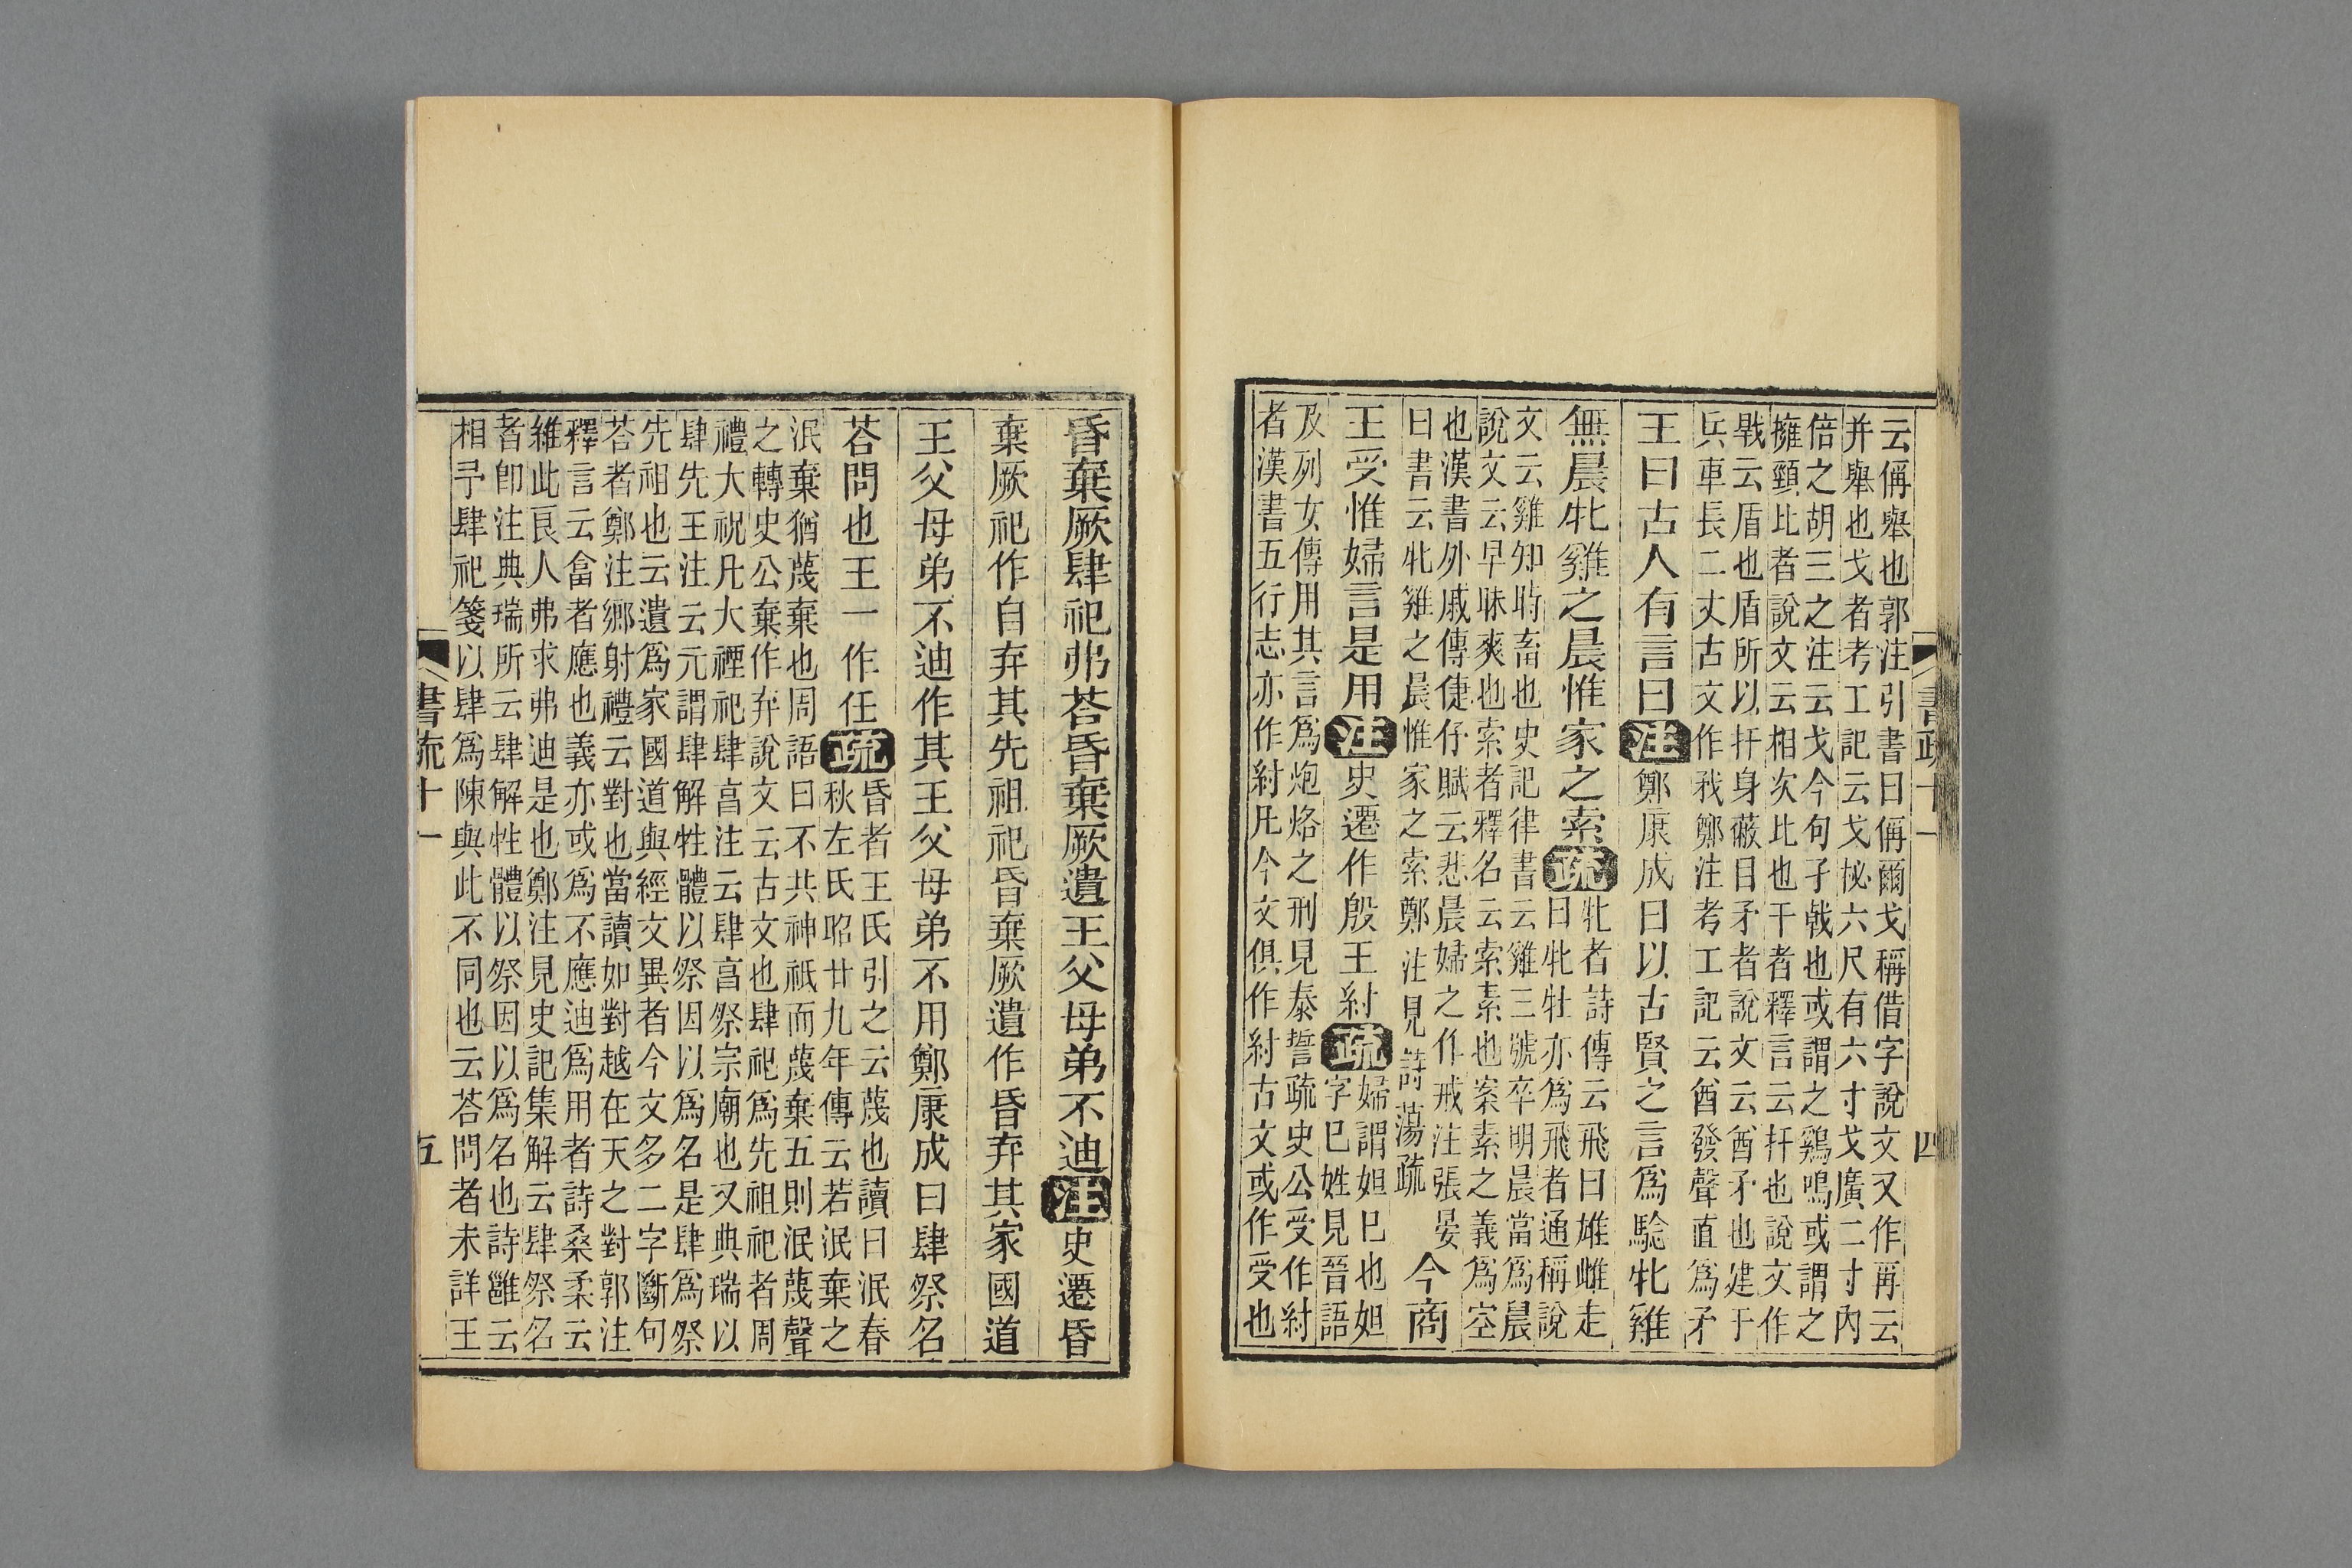 云偁舉也郭注引書曰偁爾戈稱借字說文又作再云
并舉也戈者考工記云戈柲六尺有六寸戈廣二寸內
倍之胡三之注云戈今句孑戟也或謂之雞鳴或謂之
擁頸比者說文云相次比也干者釋言云扞也說文作
戰云盾也盾所以扞身蔽目矛者說文云酋矛也建于
兵車長二丈古文作我鄭注考工記云酋發聲直爲矛
王曰古人有言曰注鄭康成曰以古賢之言爲驗牝雞
無晨牝雞之晨惟家之索疏
牝者詩傳云飛曰雄雌走
曰牝牡亦爲飛者通稱說
文云雞知時畜也史記律書云雞三號卒明晨當爲晨
說文云早昧爽也索者釋名云索素也案素之義爲空
也漢書外戚傳倢伃賦云悲晨婦之作戒注張晏
曰書云牝雞之晨惟家之索鄭注見詩蕩疏
今商
王受惟婦言是用注史遷作殷王紂疏
婦謂妲己也妲
字己姓見晉語
及列女傳用其言爲炮烙之刑見泰誓疏史公受作紂
者漢書五行志亦作紂凡今文俱作紂古文或作受也
書疏十一
四
昏棄厥肆祀弗荅昏棄厥遺王父母弟不迪注史遷昏
棄厥祀作自弃其先祖祀昏棄厥遺作昏弃其家國道
王父母弟不迪作其王父母弟不用鄭康成曰肆祭名
荅問也王一作任疏
昏者王氏引之云蔑也讀曰泯春
秋左氏昭廿九年傳云若泯棄之
泯棄猶蔑棄也周語曰不共神祇而蔑棄五則泯蔑聲
之轉史公棄作弃說文云古文也肆祀爲先祖祀者周
禮大祝凡大禋祀肆亯注云肆亯祭宗廟也又典瑞以
肆先王注云元謂肆解牲體以祭因以爲名是肆爲祭
先祖也云遺爲家國道與經文異者今文多二字斷句
荅者鄭注鄉射禮云對也當讀如對越在天之對郭注
釋言云畣者應也義亦或爲不應迪爲用者詩桑柔云
維此良人弗求弗迪是也鄭注見史記集解云肆祭名
者卽注典瑞所云肆解牲體以祭因以爲名也詩雝云
相予肆祀箋以肆爲陳與此不同也云荅問者未詳王
書疏十一
五